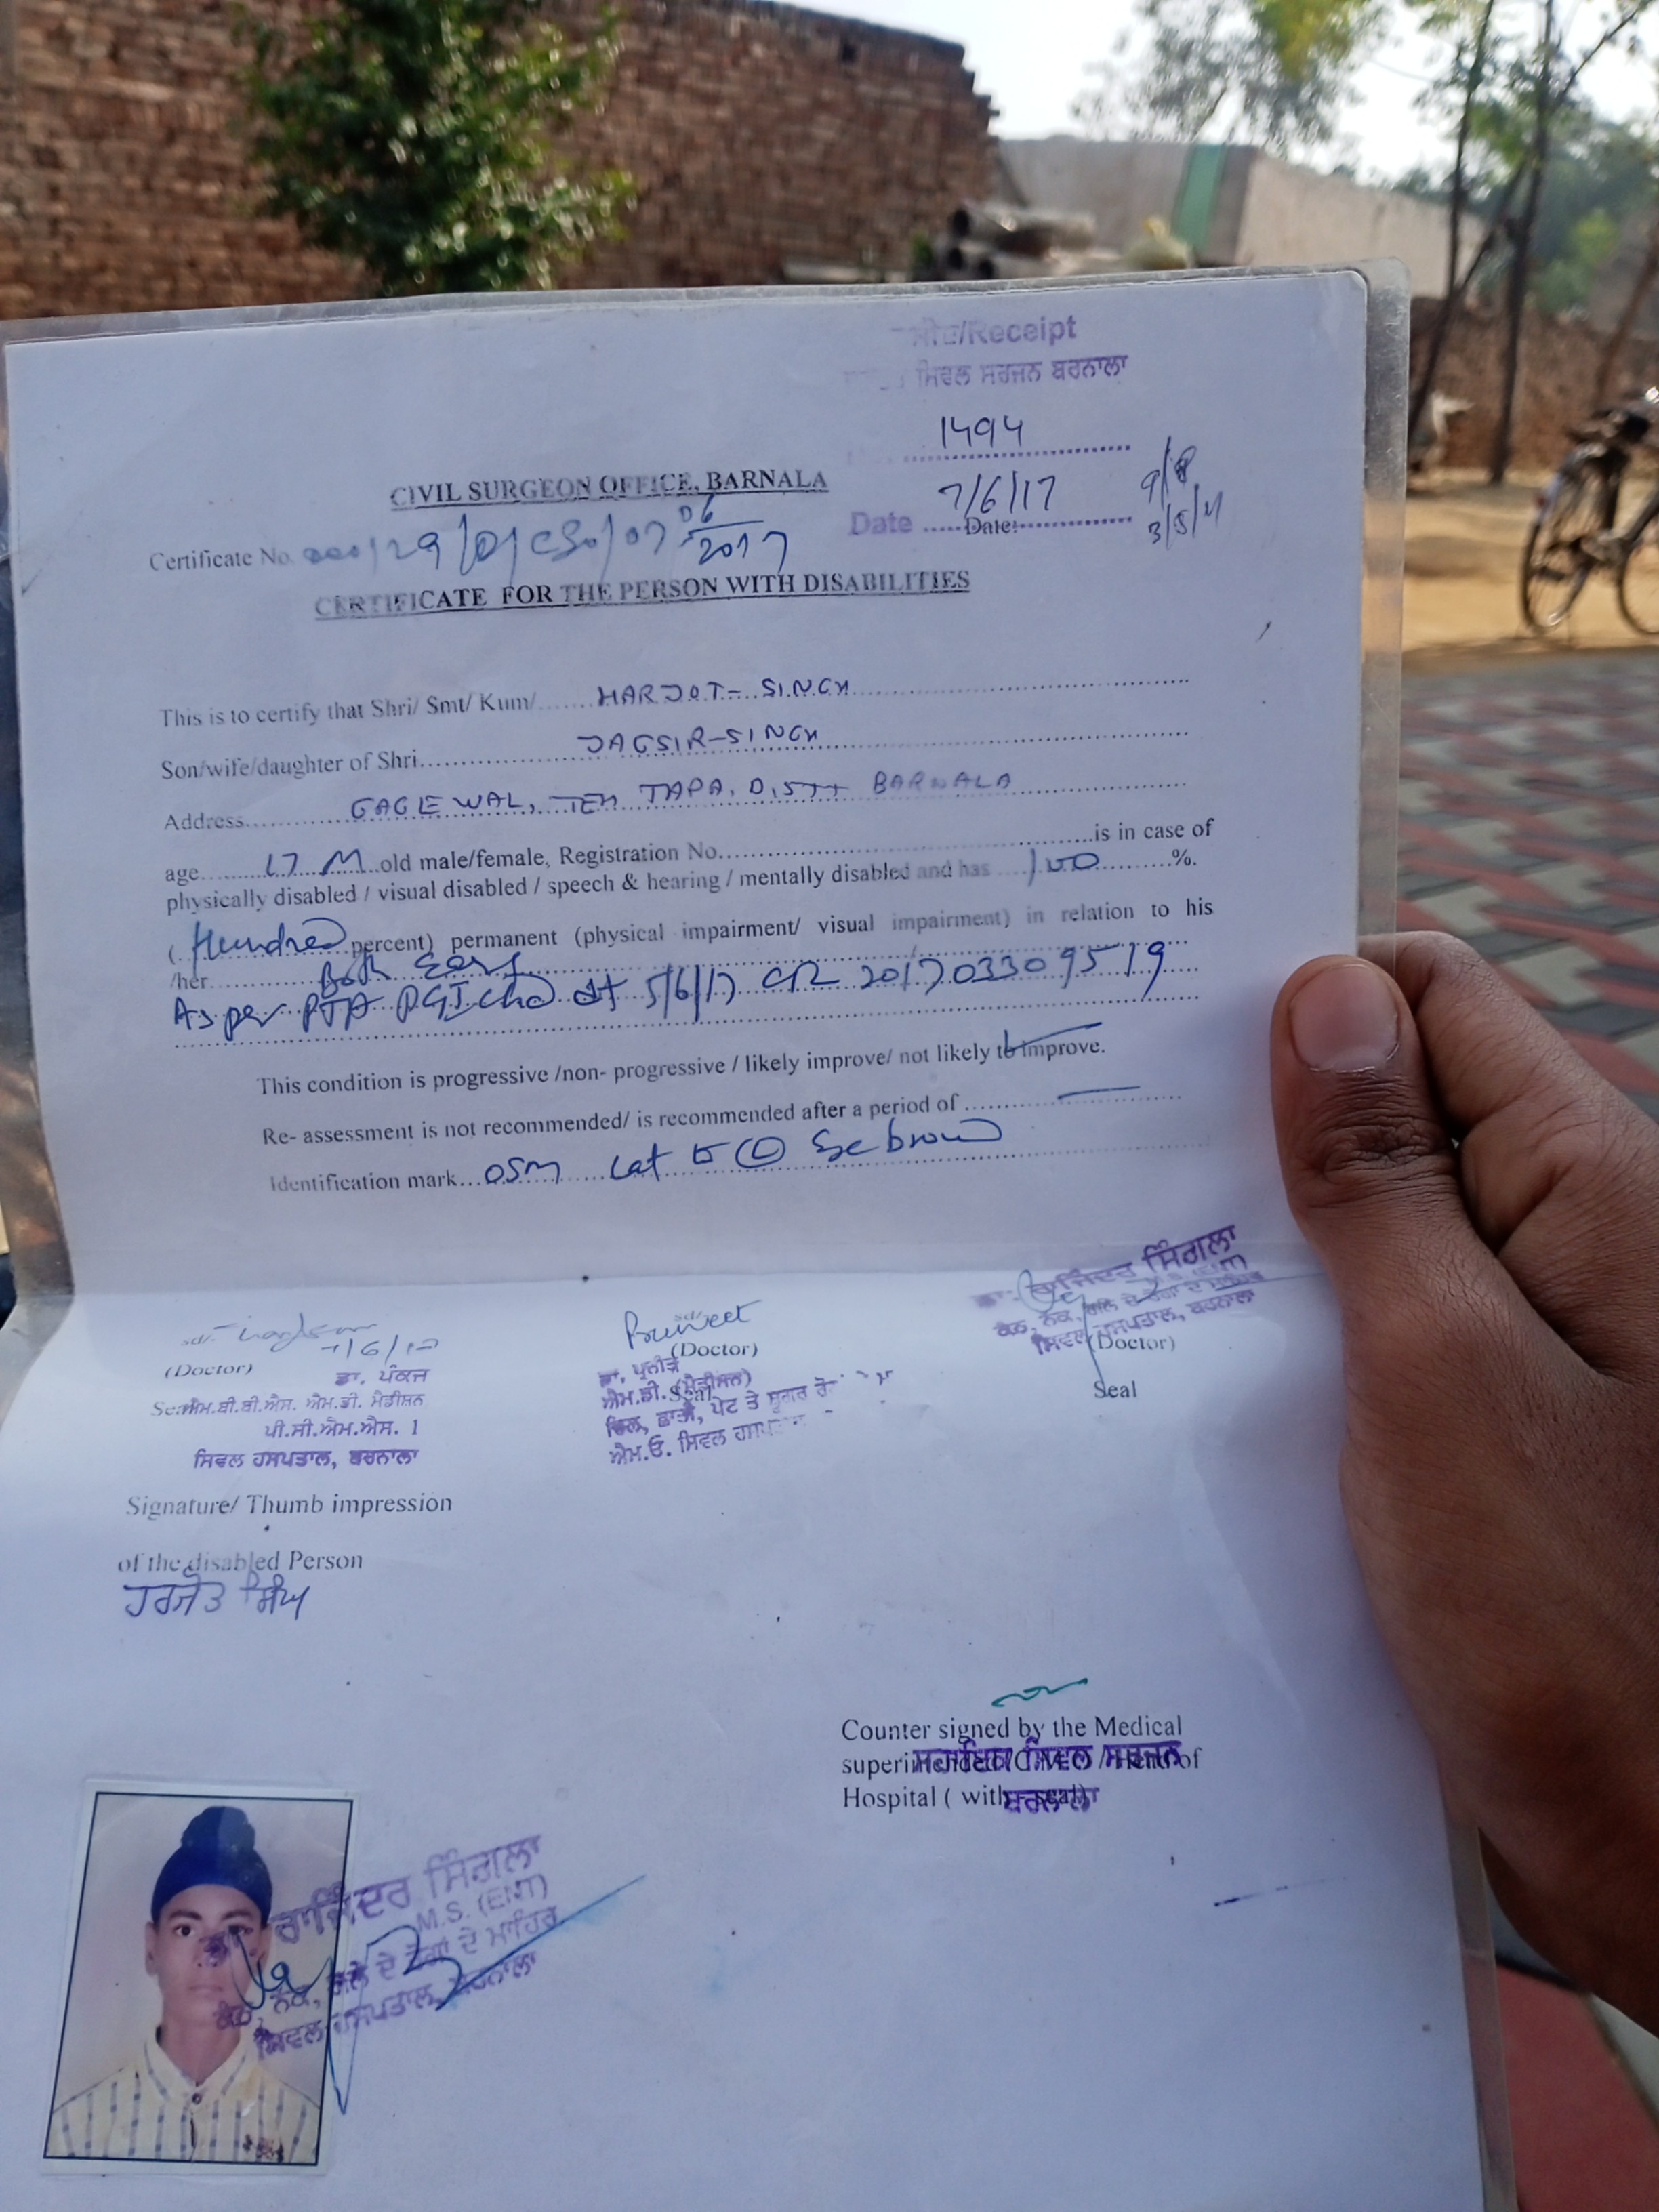 ਰਸੀਦ/Receipt
ਸਿਵਲ ਸਰਜਨ ਬਰਨਾਲਾ
1494
CIVIL SURGEON OFFICE, BARNALA
7/6/17
Date ......Date:......
Certificate No. 29/D/CSO/07 06 2017
CERTIFICATE FOR THE PERSON WITH DISABILITIES
This is to certify that Shri/ Smt/ Kum/ HARJOT-SINGH
Son/wife/daughter of Shri JAGSIR-SINGH
Address GAGEWAL, TEH TAPA, DISTT BARNALA
age 17 M old male/female, Registration No. is in case of
physically disabled / visual disabled / speech & hearing / mentally disabled and has 100 %.
( Hundred percent) permanent (physical impairment/ visual impairment) in relation to his
/her Both Ears
As per PTA PGI Chd dt 5/6/17 CR 201703309519
This condition is progressive /non- progressive / likely improve/ not likely to improve.
Re- assessment is not recommended/ is recommended after a period of
Identification mark
sd/- 7/6/17
(Doctor)
ਡਾ. ਪੰਕਜ
ਐਮ.ਬੀ.ਬੀ.ਐਸ. ਐਮ.ਡੀ. ਮੈਡੀਸਨ
ਪੀ.ਸੀ.ਐਮ.ਐਸ. 1
ਸਿਵਲ ਹਸਪਤਾਲ, ਬਰਨਾਲਾ
sd/- Puneet
(Doctor)
ਡਾ. ਪੁਨੀਤ
ਐਮ.ਡੀ. (ਮੈਡੀਸਨ)
Seal
ਦਿਲ, ਛਾਤੀ, ਪੇਟ ਤੇ ਸ਼ੂਗਰ
ਐਮ.ਓ. ਸਿਵਲ
ਡਾ. ਰਾਜਿੰਦਰ ਸਿੰਗਲਾ
M.S. (ENT)
ਕੰਨ, ਨੱਕ, ਗਲੇ ਦੇ ਰੋਗਾਂ ਦੇ ਮਾਹਿਰ
ਸਿਵਲ ਹਸਪਤਾਲ, ਬਰਨਾਲਾ
(Doctor)
Seal
Signature/ Thumb impression
of the disabled Person
ਹਰਜੋਤ ਸਿੰਘ
Counter signed by the Medical
superintendent/C.M.O / Head of
Hospital ( with seal)
ਸਿਵਲ ਸਰਜਨ
ਬਰਨਾਲਾ
ਰਾਜਿੰਦਰ ਸਿੰਗਲਾ
M.S. (ENT)
ਕੰਨ, ਨੱਕ, ਗਲੇ ਦੇ ਰੋਗਾਂ ਦੇ ਮਾਹਿਰ
ਸਿਵਲ ਹਸਪਤਾਲ, ਬਰਨਾਲਾ